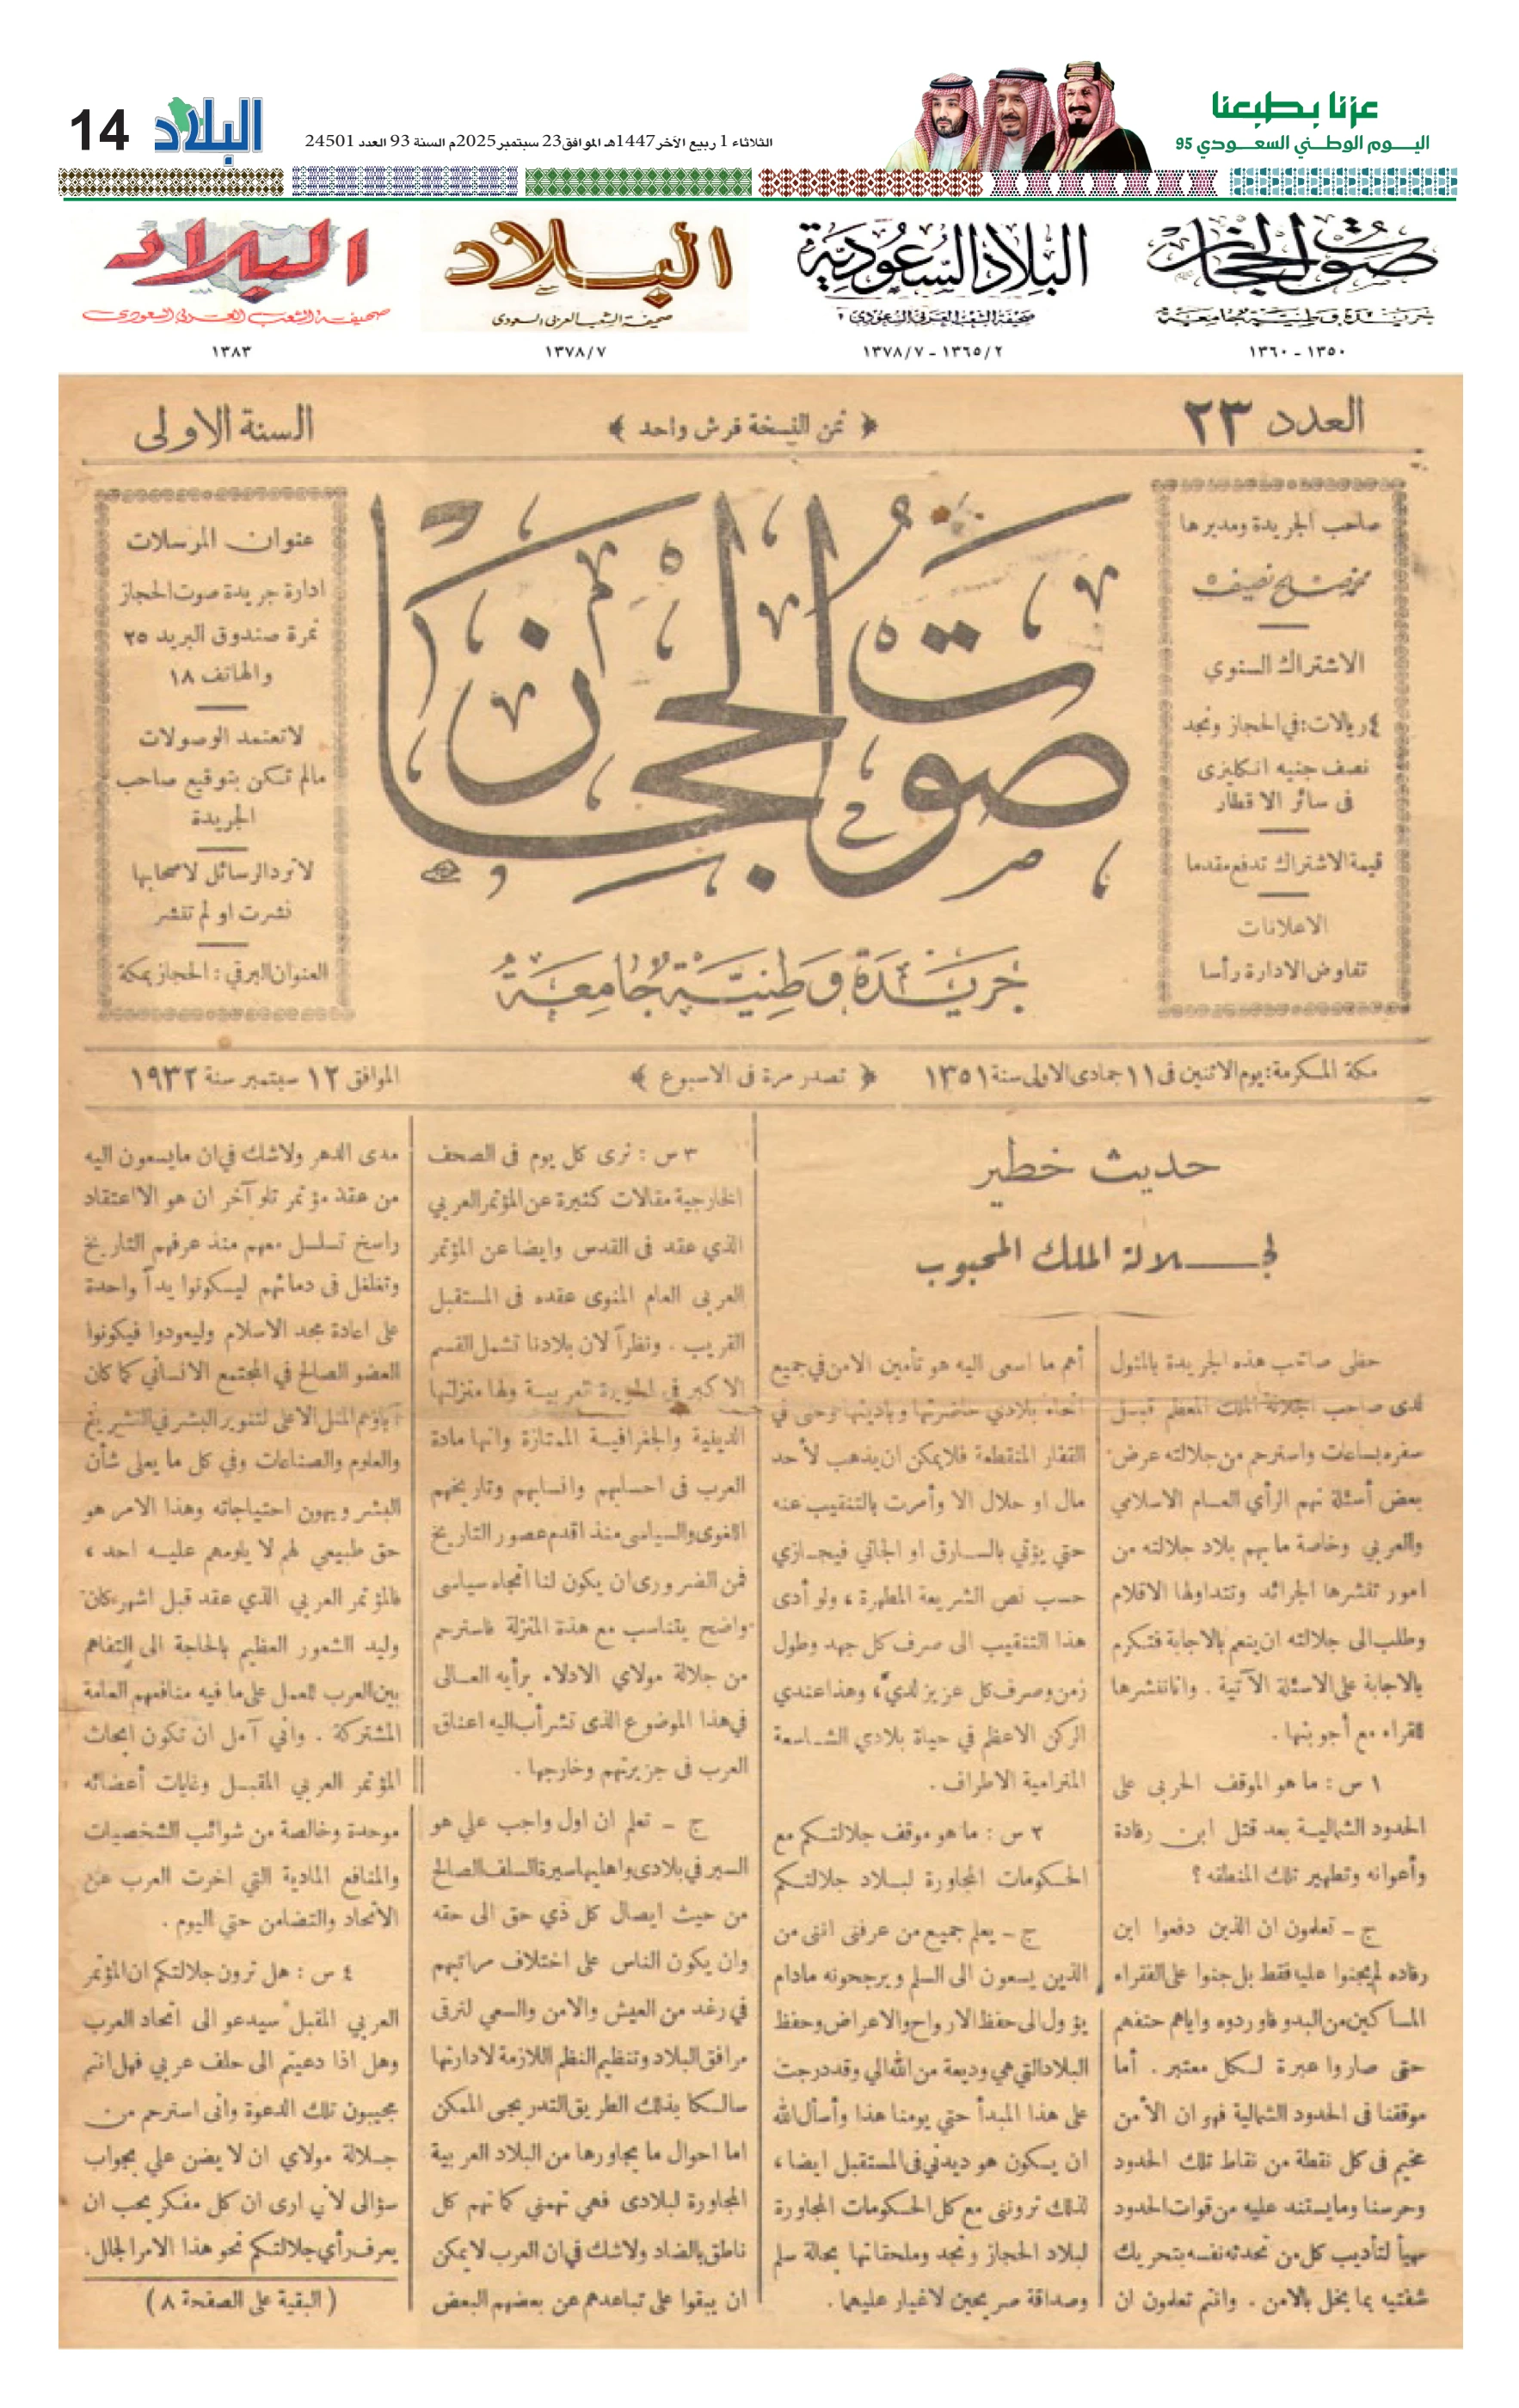 عزنا بطبعنا
اليـــوم الوطــني السعـــودي 95
الثلاثاء 1 ربيع الآخر 1447هـ الموافق 23 سبتمبر 2025م السنة 93 العدد 24501
البلاد
14
صوت الحجاز
جريدة وطنية جامعة
١٣٥٠ - ١٣٦٠
البلاد السعودية
صحيفة الشعب العربي السعودي
١٣٦٥/٢ - ١٣٧٨/٧
البلاد
صحيفة الشعب العربي السعودي
١٣٧٨/٧
البلاد
صحيفة الشعب العربي السعودي
١٣٨٣
العدد ٢٣
﴿ ثمن النسخة قرش واحد ﴾
السنة الاولى
صاحب الجريدة ومديرها
محمد صالح نصيف
الاشتراك السنوي
٤ ريالات: في الحجاز ونجد
نصف جنيه انكليزى
فى سائر الاقطار
قيمة الاشتراك تدفع مقدما
الاعلانات
تفاوض الادارة رأسا
صوت الحجاز
جريدة وطنية جامعة
عنوان المرسلات
ادارة جريدة صوت الحجاز
نمرة صندوق البريد ٢٥
والهاتف ١٨
لاتعتمد الوصولات
مالم تكن بتوقيع صاحب
الجريدة
لاترد الرسائل لاصحابها
نشرت او لم تنشر
العنوان البرقي: الحجاز بمكة
مكة المكرمة: يوم الاثنين فى ١١ جمادى الاولى سنة ١٣٥١
﴿ تصدر مرة فى الاسبوع ﴾
الموافق ١٢ سبتمبر سنة ١٩٣٢
حديث خطير
لجــــلالة الملك المحبوب
حظى صاحب هذه الجريدة بالمثول
لدى صاحب الجلالة الملك المعظم قبيل
سفره بساعات واسترحم من جلالته عرض
بعض أسئلة تهم الرأي العام الاسلامي
والعربي وخاصة ما يهم بلاد جلالته من
امور تنشرها الجرائد وتتداولها الاقلام
وطلب الى جلالته ان ينعم بالاجابة فتكرم
بالاجابة على الاسئلة الآتية . وانا ننشرها
للقراء مع أجوبتها.
١ س : ما هو الموقف الحربى على
الحدود الشمالية بعد قتل ابن رفادة
وأعوانه وتطهير تلك المنطقه ؟
ج - تعلمون ان الذين دفعوا ابن
رفاده لم يجنوا عليه فقط بل جنوا على الفقراء
المساكين من البدو فاوردوه واياهم حتفهم
حتى صاروا عبرة لكل معتبر. أما
موقفنا فى الحدود الشمالية فهو ان الأمن
مخيم فى كل نقطة من نقاط تلك الحدود
وحرسنا وما يستند عليه من قوات الحدود
مهيأ لتأديب كل من تحدثه نفسه بتحريك
شفتيه بما يخل بالامن . وانتم تعلمون ان
أهم ما اسعى اليه هو تأمين الامن في جميع
أنحاء بلادي حاضرتها وباديتها وحتى في
القفار المنقطعة فلا يمكن ان يذهب لأحد
مال او حلال الا وأمرت بالتنقيب عنه
حتي يؤتي بالسارق او الجاني فيجازي
حسب نص الشريعة المطهرة ، ولو أدى
هذا التنقيب الى صرف كل جهد وطول
زمن وصرف كل عزيز لدي ، وهذا عندي
الركن الاعظم في حياة بلادي الشاسعة
المترامية الاطراف .
٢ س : ما هو موقف جلالتكم مع
الحكومات المجاورة لبلاد جلالتكم
ج - يعلم جميع من عرفنى اننى من
الذين يسعون الى السلم ويرجحونه مادام
يؤول الى حفظ الارواح والاعراض وحفظ
البلاد التي هي وديعة من الله الي وقد درجت
على هذا المبدأ حتي يومنا هذا وأسأل الله
ان يكون هو ديدني فى المستقبل ايضا ،
لذلك تروننى مع كل الحكومات المجاورة
لبلاد الحجاز ونجد وملحقاتها بحالة سلم
وصداقة صريحين لاغبار عليهما .
٣ س : نرى كل يوم فى الصحف
الخارجية مقالات كثيرة عن المؤتمر العربي
الذي عقد فى القدس وايضا عن المؤتمر
العربى العام المنوى عقده فى المستقبل
القريب . ونظراً لان بلادنا تشمل القسم
الاكبر في الجزيرة العربية ولها منزلتها
الدينية والجغرافية الممتازة وانها مادة
العرب فى احسابهم وانسابهم وتاريخهم
اللغوى والسياسى منذ اقدم عصور التاريخ
فمن الضرورى ان يكون لنا اتجاه سياسى
واضح يتناسب مع هذة المنزلة فاسترحم
من جلالة مولاي الادلاء برأيه العالى
في هذا الموضوع الذى تشرأب اليه اعناق
العرب فى جزيرتهم وخارجها .
ج - تعلم ان اول واجب علي هو
السير في بلادى واهليها سيرة السلف الصالح
من حيث ايصال كل ذي حق الى حقه
وان يكون الناس على اختلاف مراتبهم
في رغد من العيش والامن والسعي لترقى
مرافق البلاد وتنظيم النظم اللازمة لادارتها
سالكا بذلك الطريق التدريجى الممكن
اما احوال ما يجاورها من البلاد العربية
المجاورة لبلادى فهي تهمني كما تهم كل
ناطق بالضاد ولاشك في ان العرب لايمكن
ان يبقوا على تباعدهم عن بعضهم البعض
مدى الدهر ولاشك في ان مايسعون اليه
من عقد مؤتمر تلو آخر ان هو الا اعتقاد
راسخ تسلسل معهم منذ عرفهم التاريخ
وتغلغل فى دمائهم ليكونوا يداً واحدة
على اعادة مجد الاسلام وليعودوا فيكونوا
العضو الصالح في المجتمع الانساني كما كان
آباؤهم المثل الاعلى لتنوير البشر في التشريع
والعلوم والصناعات وفي كل ما يعلى شأن
البشر ويهون احتياجاته وهذا الامر هو
حق طبيعي لهم لا يلومهم عليه احد ،
فالمؤتمر العربي الذي عقد قبل اشهر كان
وليد الشعور العظيم بالحاجة الى التفاهم
بين العرب للعمل على ما فيه منافعهم العامة
المشتركة . واني آمل ان تكون ابحاث
المؤتمر العربي المقبل وغايات أعضائه
موحدة وخالصة من شوائب الشخصيات
والمنافع المادية التي اخرت العرب عن
الاتحاد والتضامن حتي اليوم .
٤ س : هل ترون جلالتكم ان المؤتمر
العربي المقبل سيدعو الى اتحاد العرب
وهل اذا دعيتم الى حلف عربي فهل انتم
مجيبون تلك الدعوة وانى استرحم من
جلالة مولاي ان لا يضن علي بجواب
سؤالى لأني ارى ان كل مفكر يحب ان
يعرف رأي جلالتكم نحو هذا الامر الجلل.
( البقية على الصفحة ٨ )